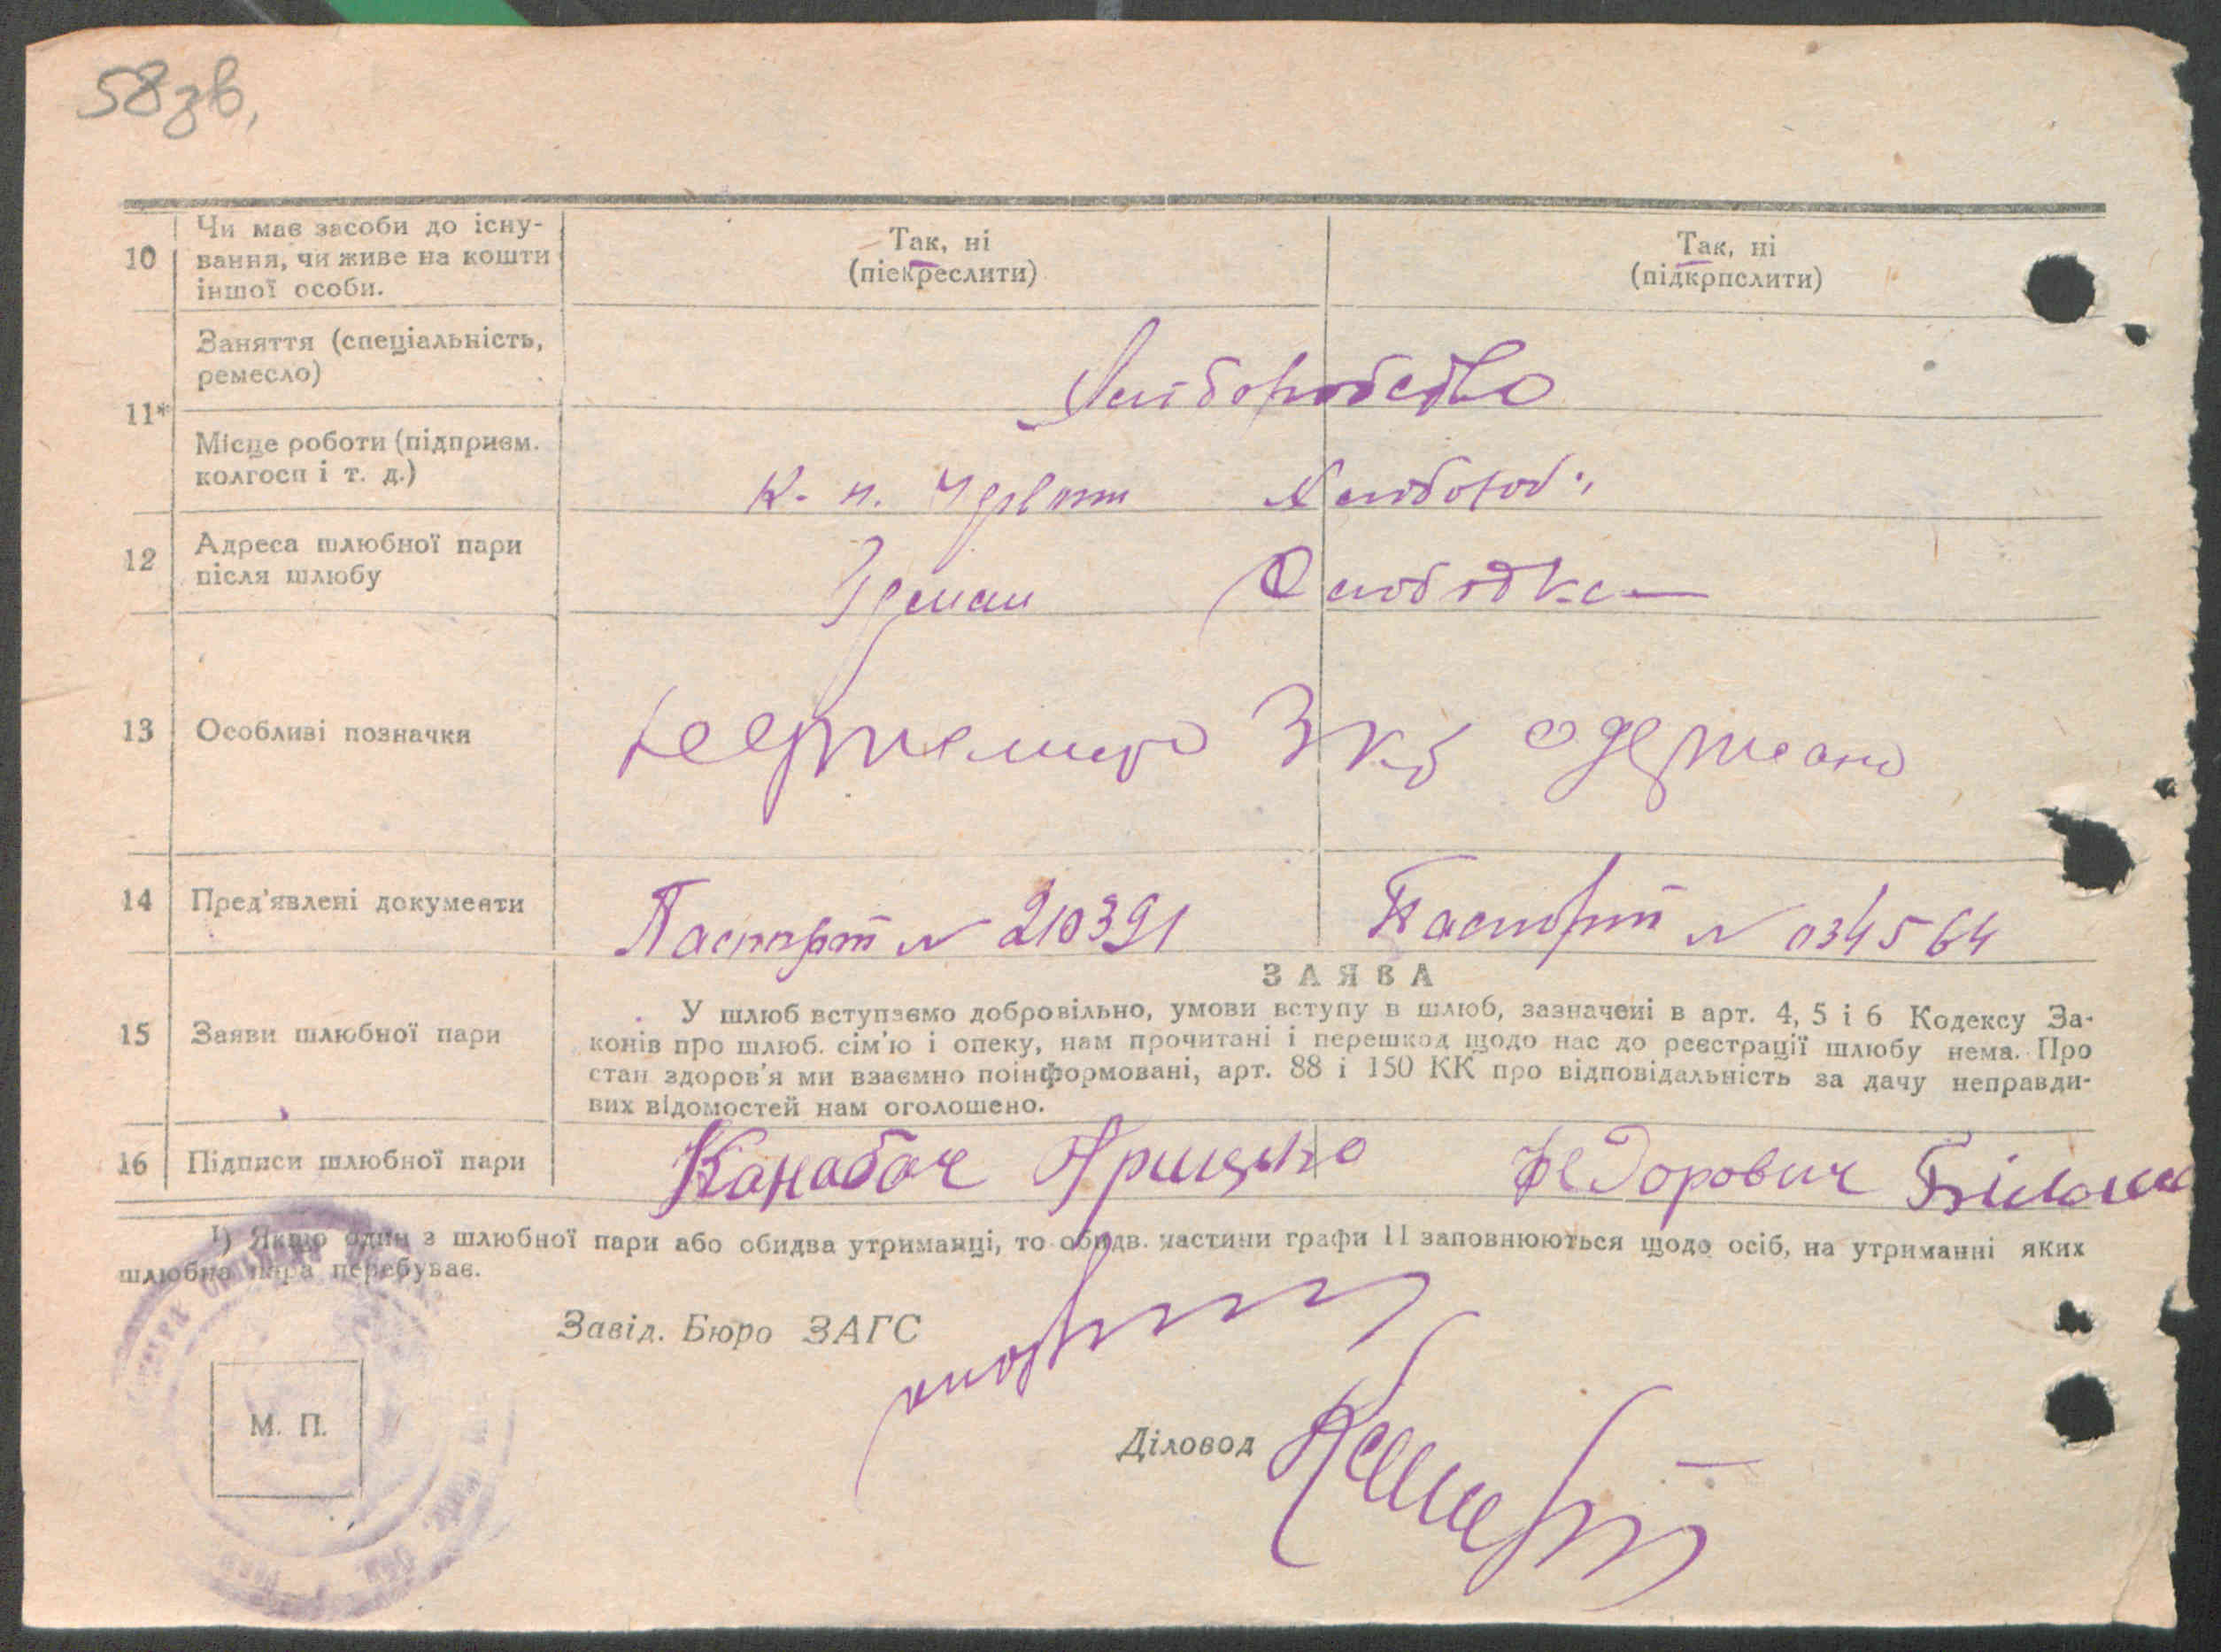 58зв.
10 Чи має засоби до існу-
вання, чи живе на кошти
іншої особи.
Так, ні
(піекреслити)
Так, ні
(підкрпслити)
11* Заняття (спеціальність,
ремесло)
Хліборобство
Місце роботи (підприєм.
колгосп і т. д.)
к. п.
12 Адреса шлюбної пари
після шлюбу
Слободка
13 Особливі позначки
3 кб одержано
14 Пред'явлені документи
Паспорт № 210391
Паспорт № 034564
15 Заяви шлюбної пари
ЗАЯВА
У шлюб вступаємо добровільно, умови вступу в шлюб, зазначені в арт. 4, 5 і 6 Кодексу За-
конів про шлюб. сім'ю і опеку, нам прочитані і перешкод щодо нас до реєстрації шлюбу нема. Про
стан здоров'я ми взаємно поінформовані, арт. 88 і 150 КК про відповідальність за дачу неправди-
вих відомостей нам оголошено.
16 Підписи шлюбної пари
Канабач Грицько Федорович
¹) Якщо один з шлюбної пари або обидва утриманці, то обидв. частини графи 11 заповнюються щодо осіб, на утриманні яких
шлюбна пара перебуває.
Завід. Бюро ЗАГС
М. П.
Діловод